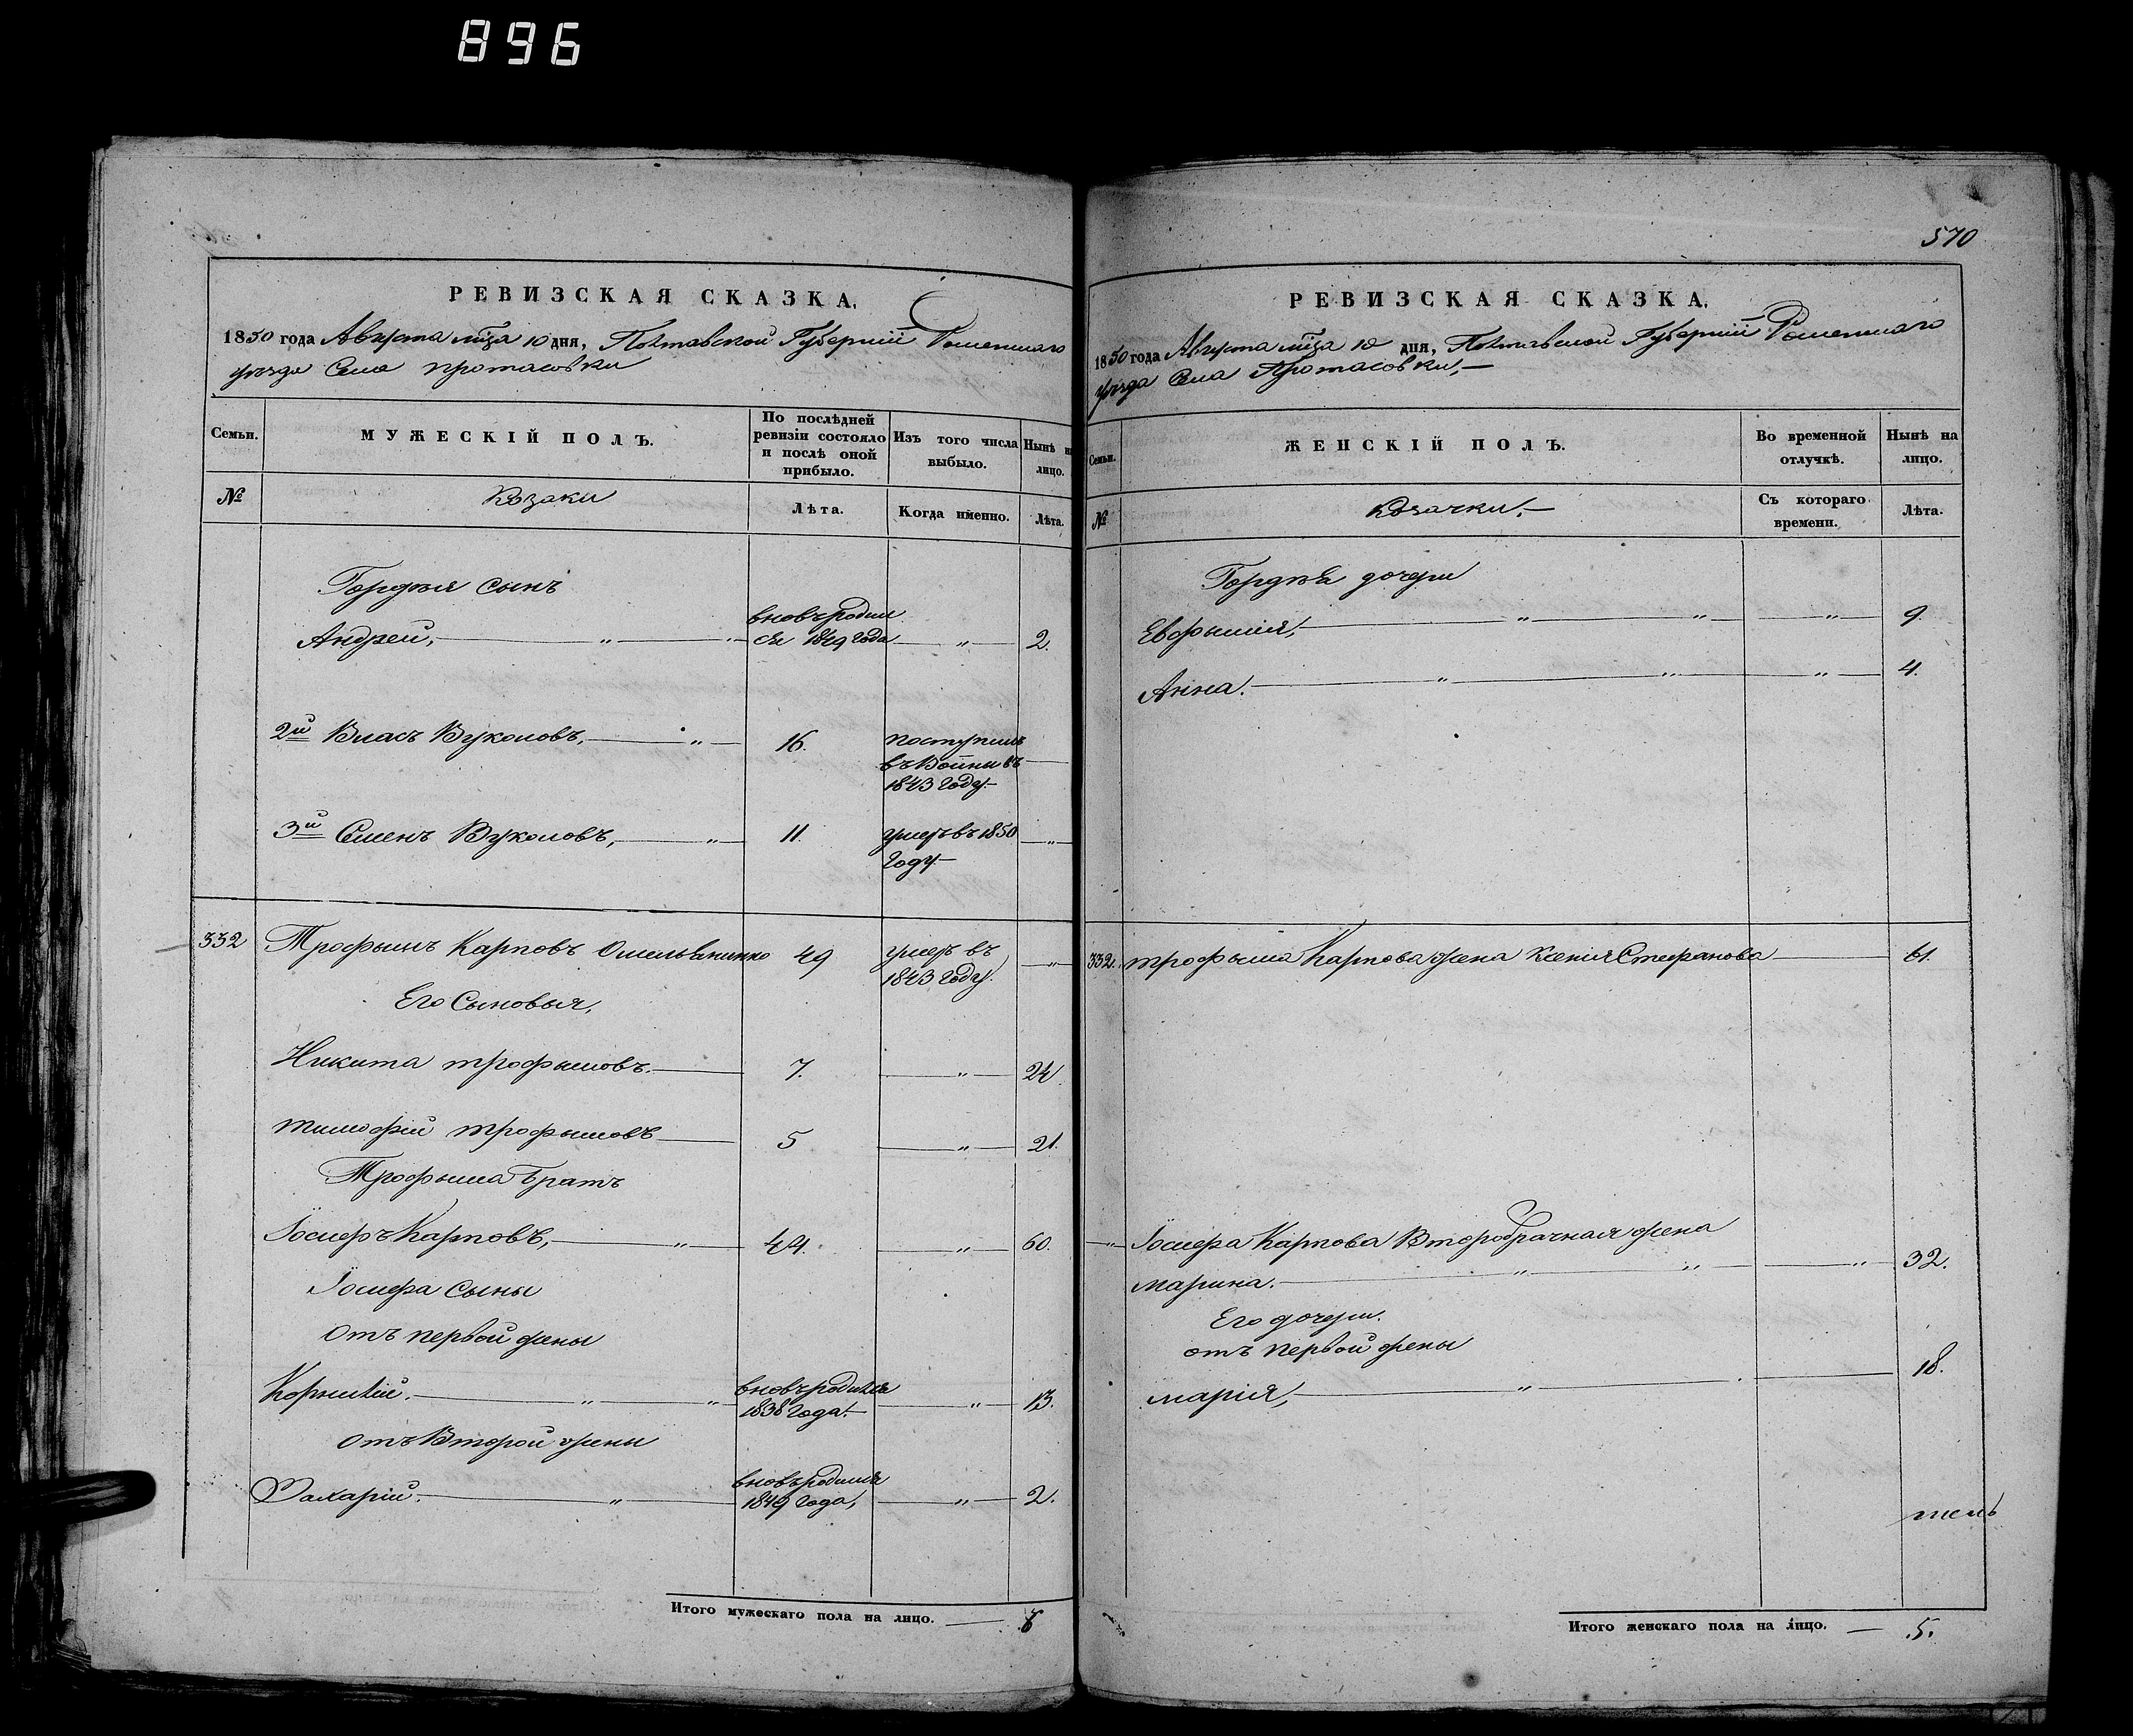 896
РЕВИЗСКАЯ СКАЗКА.
1850 года Августа мца 10 дня, Полтавской Губерніи Роменскаго
уезда Села Протасовки
Семьи.
МУЖЕСКІЙ ПОЛЪ.
По послѣдней ревизіи состояло и послѣ оной прибыло.
Изъ того числа выбыло.
Нынѣ на лицо.
№
Козаки
Лѣта.
Когда именно.
Лѣта.
Гордѣя сынъ
Андрей, вновь родил
ся 1849 года 2.
2й Власъ Вуколовъ, 16. поступилъ
въ Воины въ
1843 году
3й Семенъ Вуколовъ, 11. умеръ въ 1850
году
332 Трофымъ Карповъ Омельяненко 49 умеръ въ
1843 году.
Его Сыновья,
Никита трофымовъ. 7. 24
тимофей трофымовъ 5 21.
Трофыма братъ
Іосифъ Карповъ, 44. 60.
Іосифа сыны
отъ первой жены
Корнилій. вновь родился
1838 года. 13.
отъ Второй жены
Захарій. вновь родился
1849 года, 2.
Итого мужескаго пола на лицо. 6
570
РЕВИЗСКАЯ СКАЗКА.
1850 года Августа мца 10 дня, Полтавской Губерніи Роменскаго
уезда Села Протасовки,
Семьи.
ЖЕНСКІЙ ПОЛЪ.
Во временной отлучкѣ.
Нынѣ на лицо.
№
Козачки,
Съ котораго времени.
Лѣта.
Гордѣя дочери
Евфымія, 9.
Анна. 4.
332. трофыма Карпова жена Ксенія Стефанова 61.
Іосифа Карпова Второбрачная жена
марина. 32.
Его дочери.
отъ первой жены
марія, 18.
Итого женскаго пола на лицо. 5.